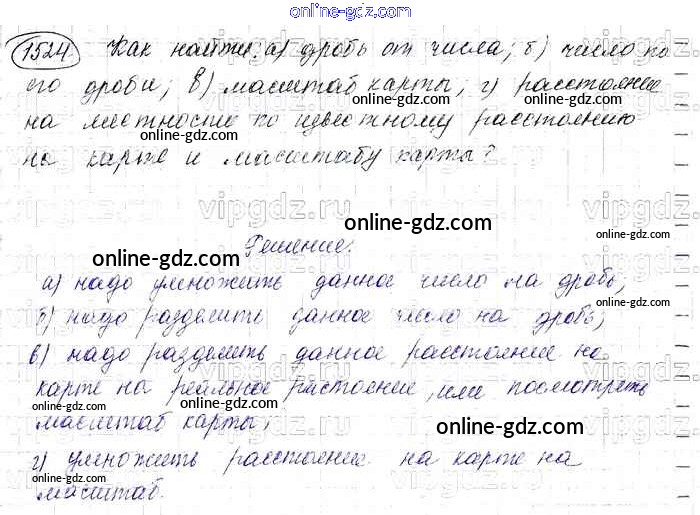 online-gdz.com
1524 Как найти: а) дробь от числа; б) число по
его дроби; в) масштаб карты, г) расстояние
на местности по известному расстоянию
на карте и масштабу карты?
Решение.
а) надо умножить данное число на дробь;
б) надо разделить данное число на дробь;
в) надо разделить данное расстояние на
карте на реальное растояние, или посмотреть
масштаб карты;
г) умножить расстояние на карте на
масштаб.
online-gdz.com
online-gdz.com
online-gdz.com
online-gdz.com
online-gdz.com
online-gdz.com
online-gdz.com
online-gdz.com
online-gdz.com
online-gdz.com
vipgdz.ru
vipgdz.ru
vipgdz.ru
vipgdz.ru